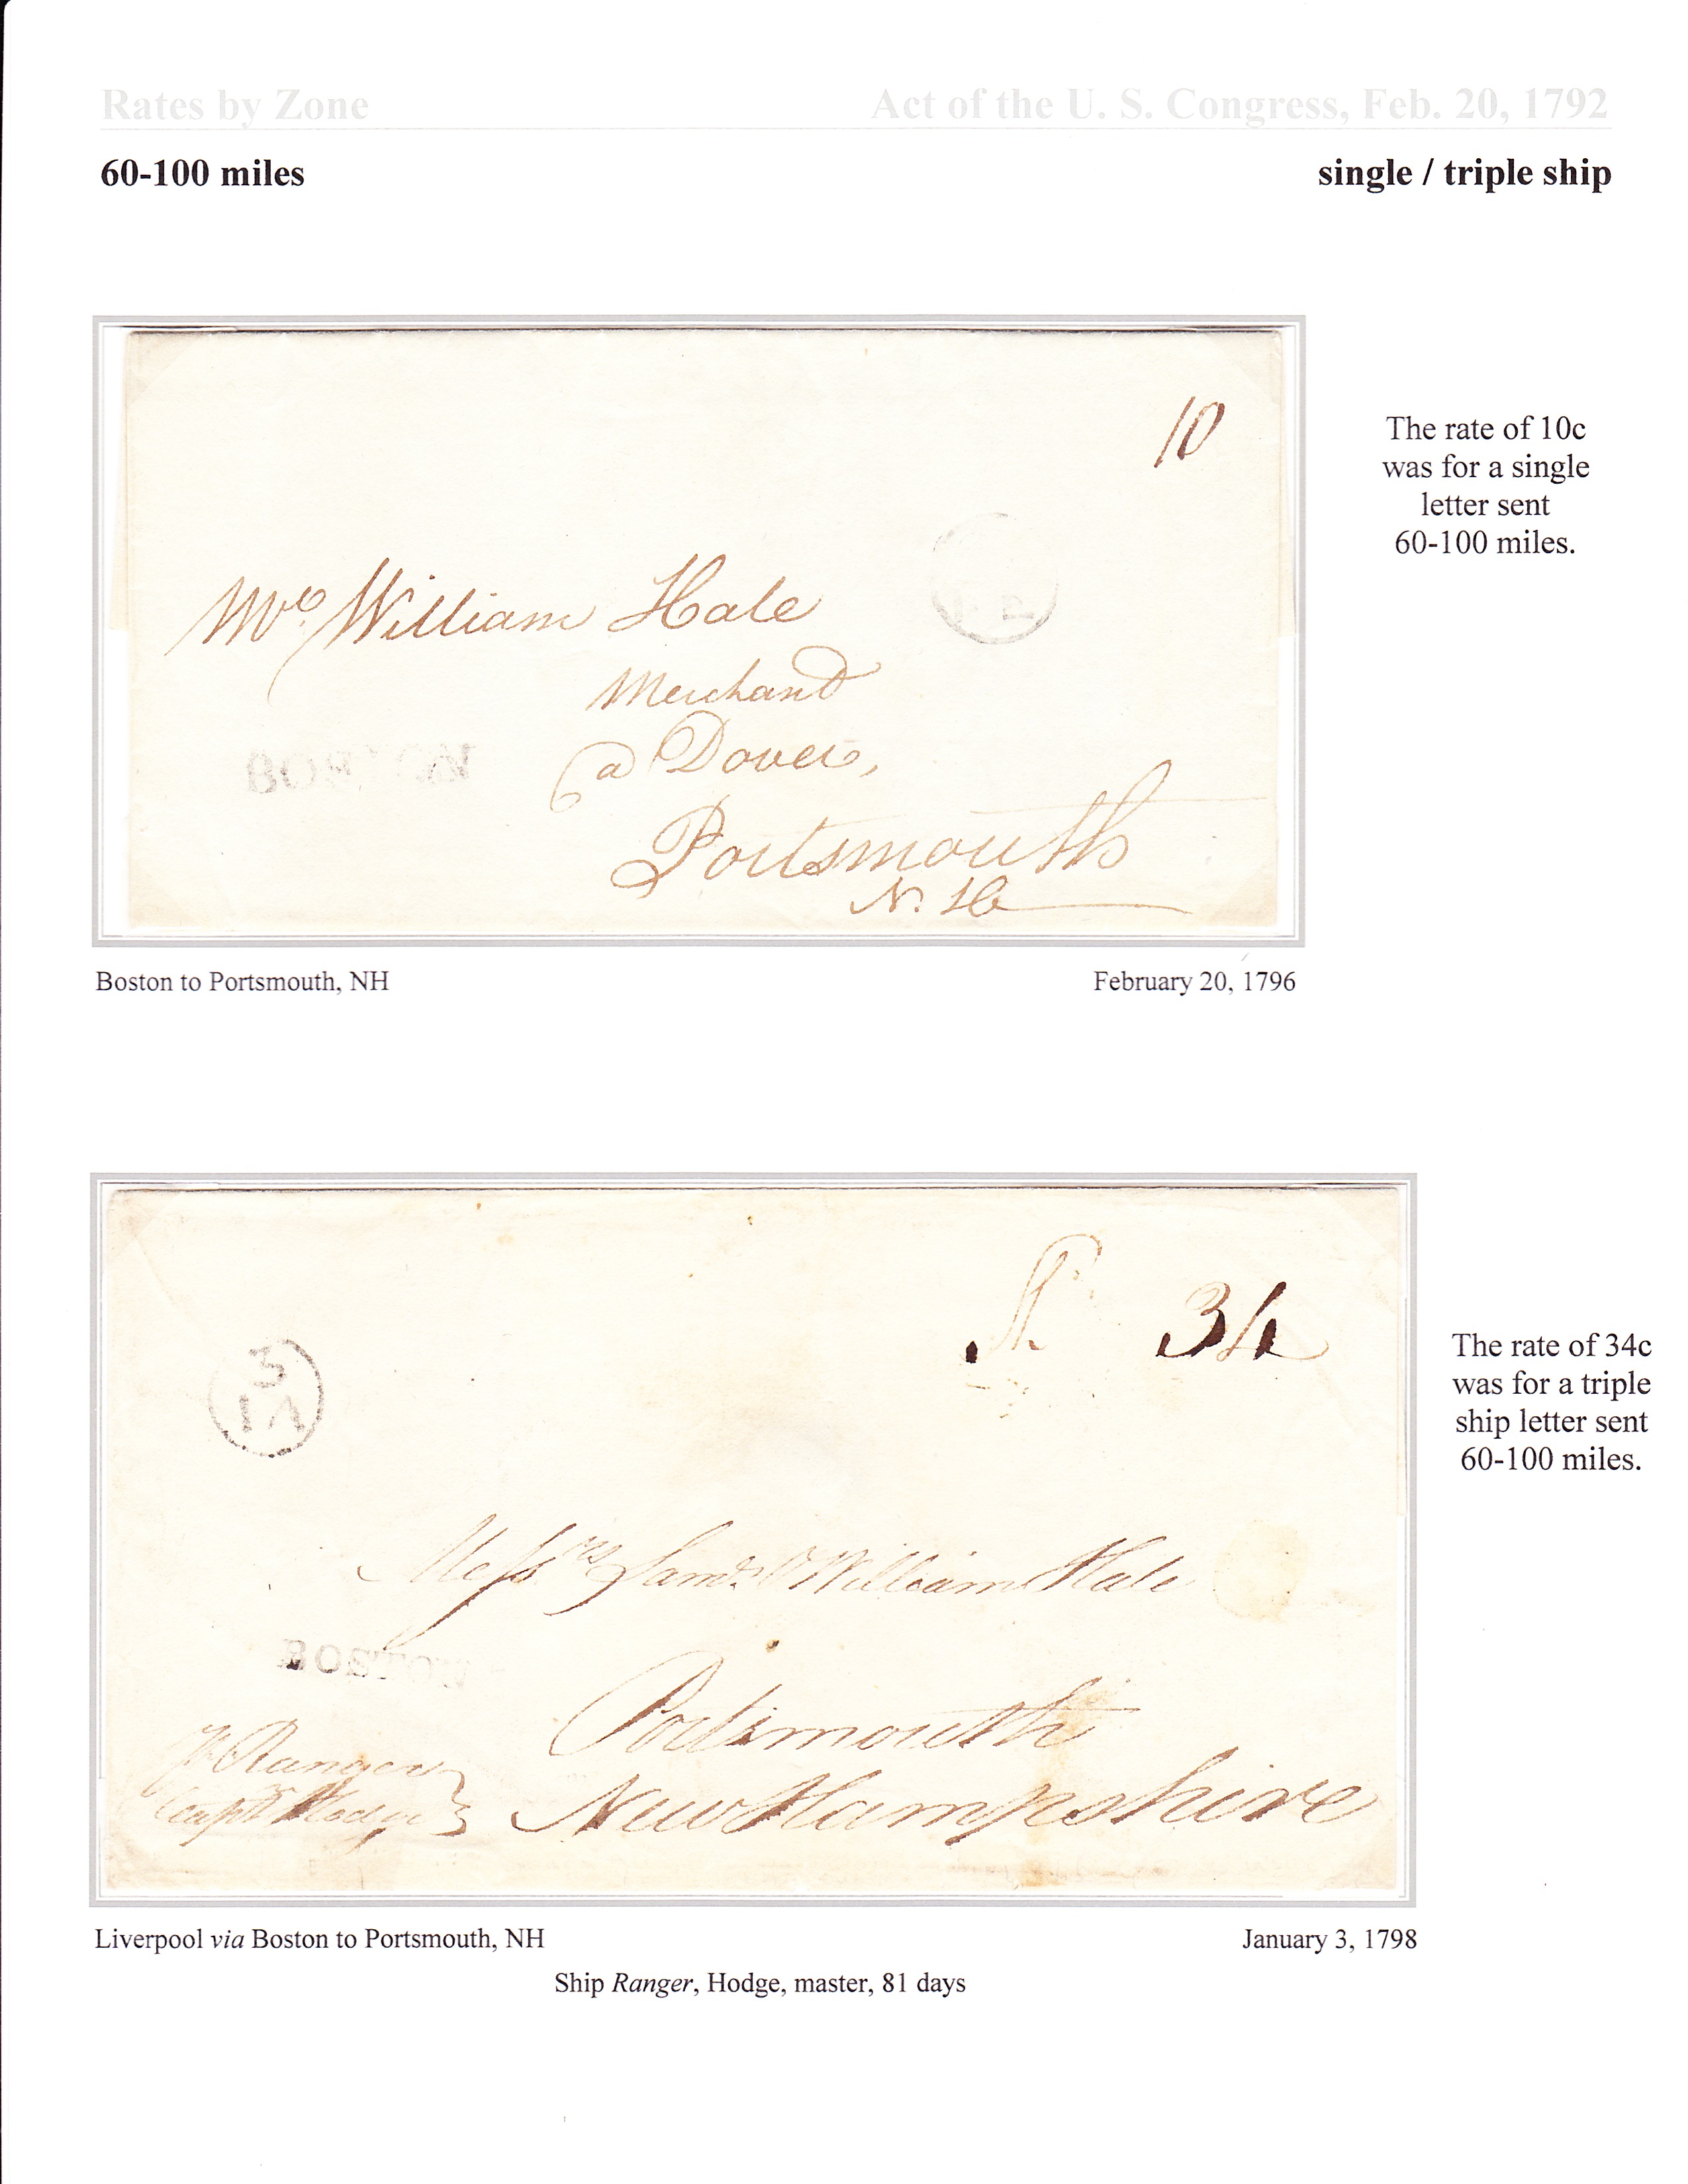 Rates by Zone
Act of the U. S. Congress, Feb. 20, 1792
60-100 miles
single / triple ship
10
The rate of 10c
was for a single
letter sent
60-100 miles.
Mr. William Hale
Merchand
a Dover,
BOSTON
Portsmouth
N. H
Boston to Portsmouth, NH
February 20, 1796
34
3
IA
The rate of 34c
was for a triple
ship letter sent
60-100 miles.
Messrs Saml & William Hale
BOSTON
Portsmouth
Ranger
Capt Hodge
New Hampshire
Liverpool via Boston to Portsmouth, NH
January 3, 1798
Ship Ranger, Hodge, master, 81 days